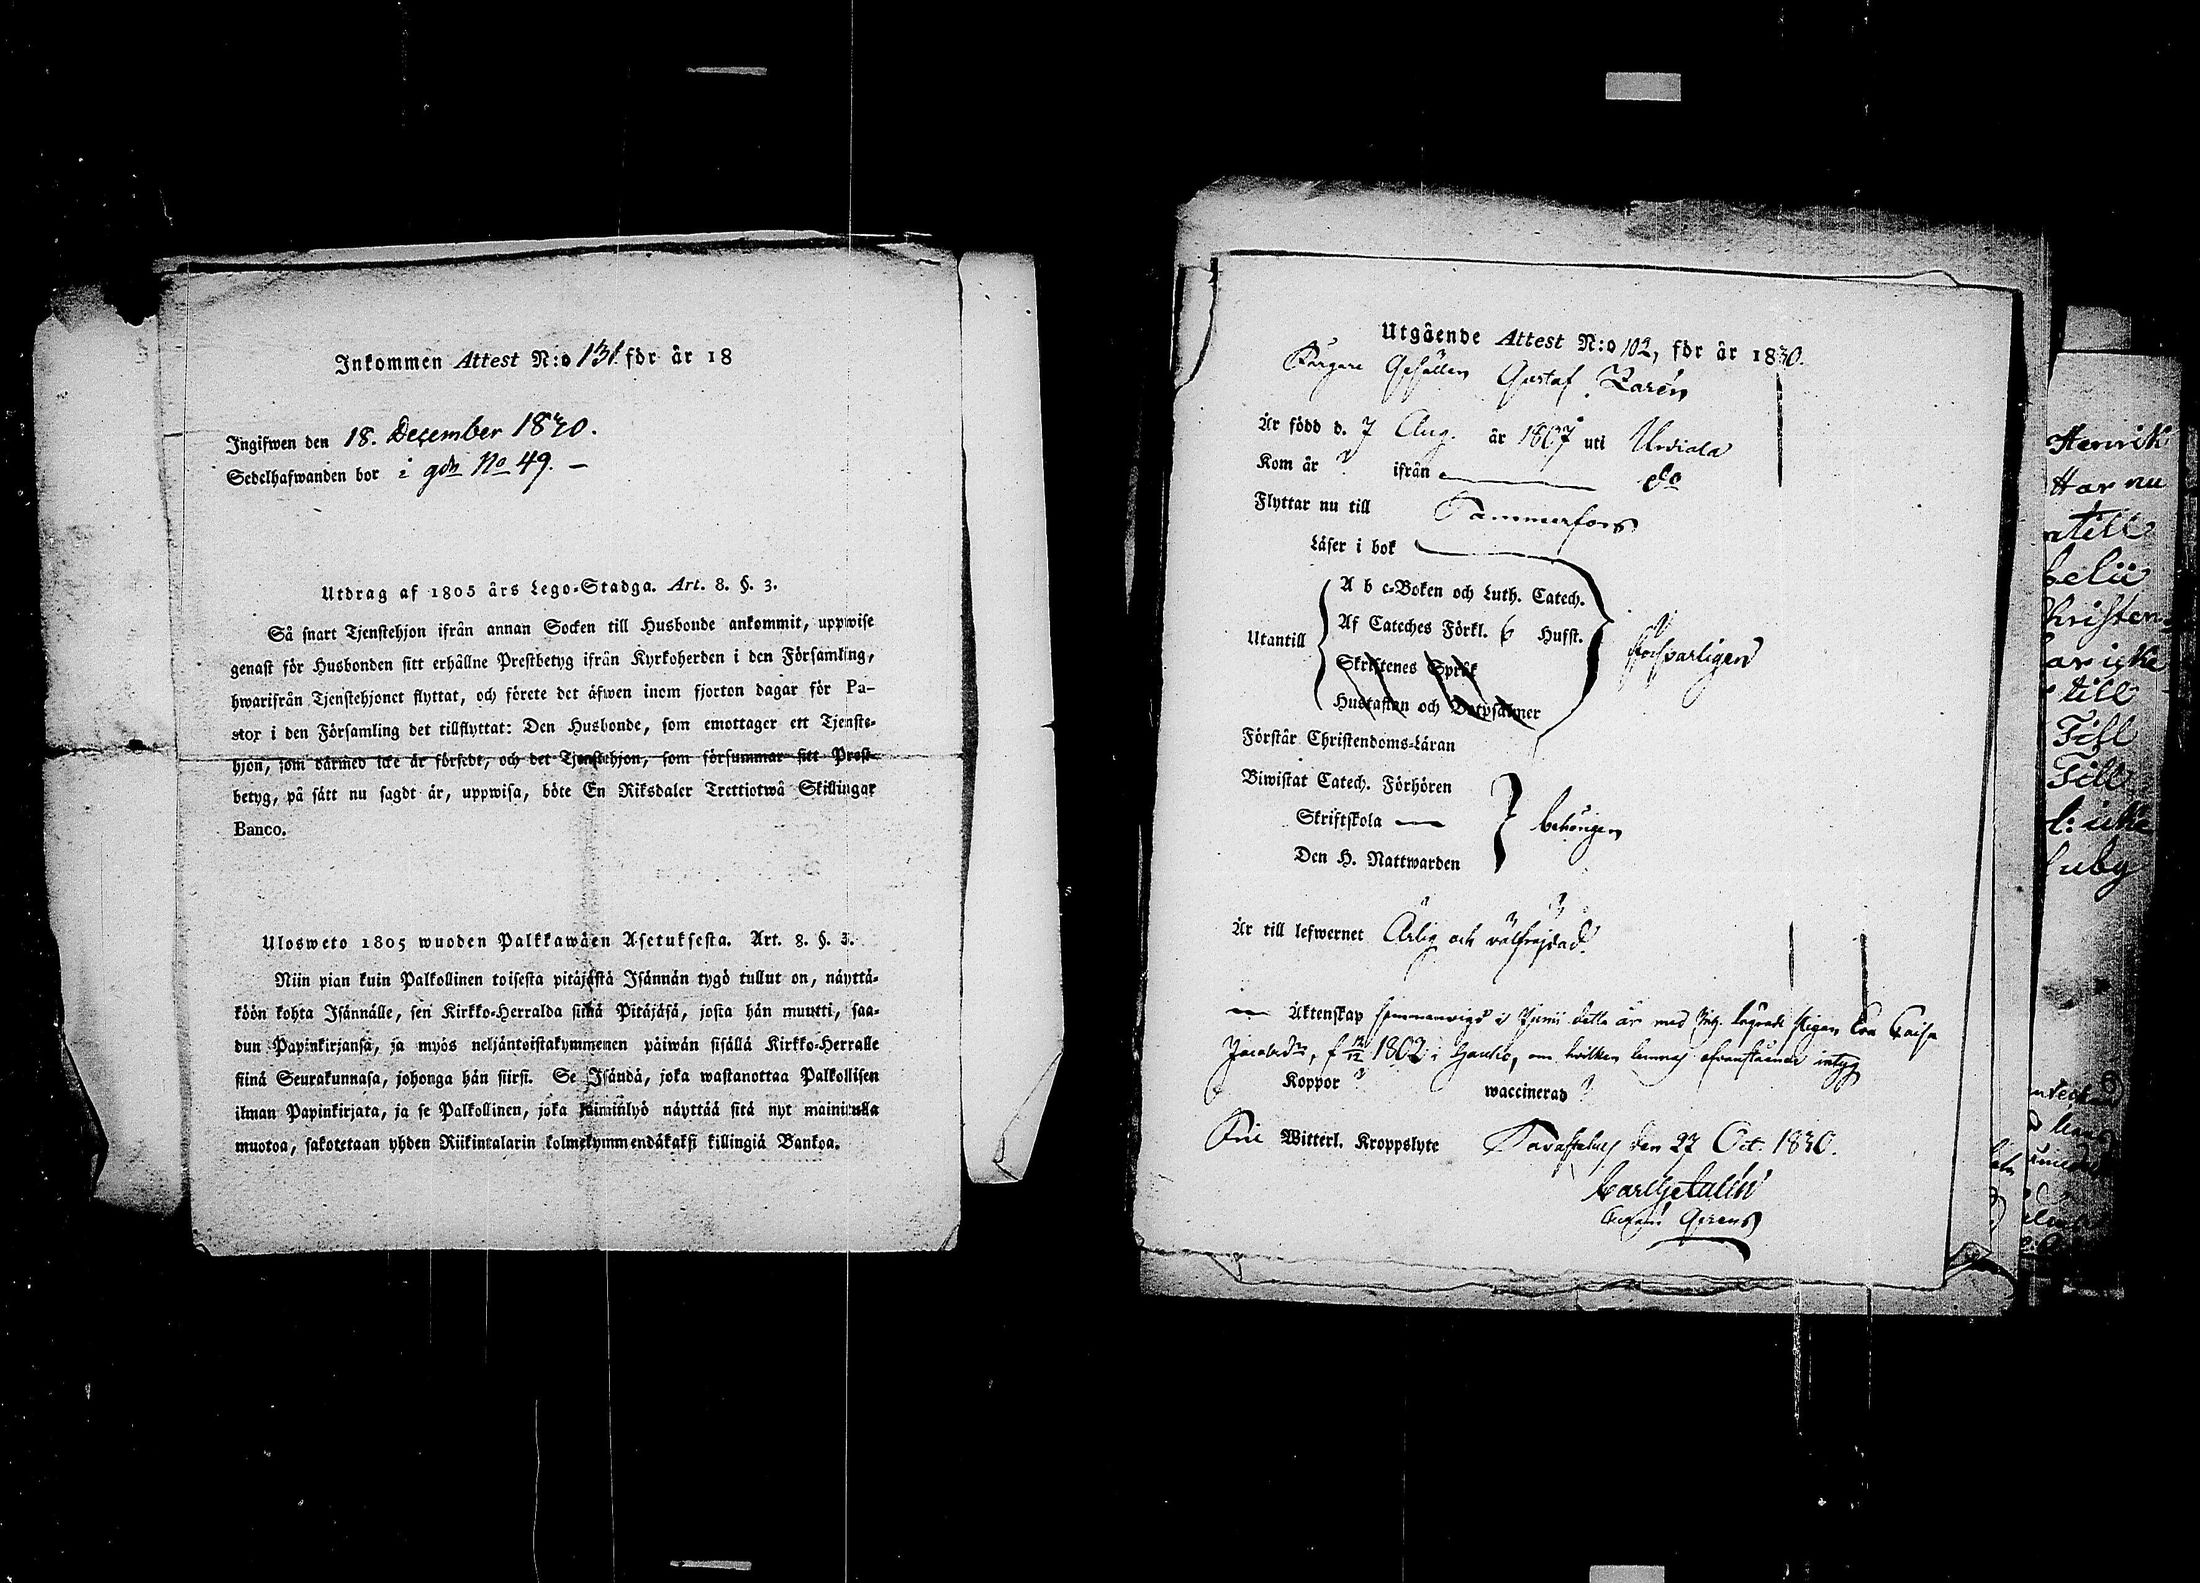 Inkommen Attest N:o 131. för år 18
Ingifwen den 18. December 1830.
Sedelhafwanden bor i gdn No 49. –
Utdrag af 1805 års Lego-Stadga. Art. 8. §. 3.
Så snart Tjenstehjon ifrån annan Socken till Husbonde ankommit, uppwise
genast för Husbonden sitt erhållne Prestbetyg ifrån Kyrkoherden i den Församling,
hwarifrån Tjenstehjonet flyttat, och förete det äfwen inom fjorton dagar för Pa-
stor i den Församling det tillflyttat: Den Husbonde, som emottager ett Tjenste-
hjon, som därmed icke är försedt, och det Tjenstehjon, som försummar sitt Prest-
betyg, på sätt nu sagdt är, uppwisa, böte En Riksdaler Trettiotwå Skillingar
Banco.
Ulosweto 1805 wuoden Palkkawäen Asetuksesta. Art. 8. §. 3.
Niin pian kuin Palkollinen toisesta pitäjästä Isännän tygö tullut on, näyttä-
köön kohta Isännälle, sen Kirkko-Herralda siinä Pitäjäsä, josta hän muutti, saa-
dun Papinkirjansa, ja myös neljäntoistakymmenen päiwän sisällä Kirkko-Herralle
siinä Seurakunnasa, johonga hän siirsi. Se Isändä, joka wastanottaa Palkollisen
ilman Papinkirjata, ja se Palkollinen, joka laiminlyö näyttää sitä nyt mainitulla
muotoa, sakotetaan yhden Riikintalarin kolmekymmendäkaksi killingiä Bankoa.
Utgående Attest N:o 102, för år 1830.
Färgare Gesällen Gustaf Zarén
Är född d. 7 Aug. år 1807 uti Urdiala
Kom år ? ifrån do
Flyttar nu till Tammerfors
Läser i bok
A b c-Boken och Luth. Catech.
Utantill Af Cateches Förkl. 6 Husst.
försvarligen
Skriftenes Språk
Hustaflan och Botpsalmer
Förstår Christendoms-Läran
Biwistat Catech. Förhören
Skriftskola — behörigen
Den H. Nattwarden
Är till lefwernet Ärlig och välfrejdad
— Äktenskap sammanvigd i Junii detta år med Pig. Eva Caisa
Jacobsdr, f 12/12 1802 i Hauho, om hvilken lemnas ofvanstående intyg
Koppor ? waccinerad ?
Fri Witterl. Kroppslyte Tavastehus den 27 Oct. 1830.
Henrik
Har nu
till